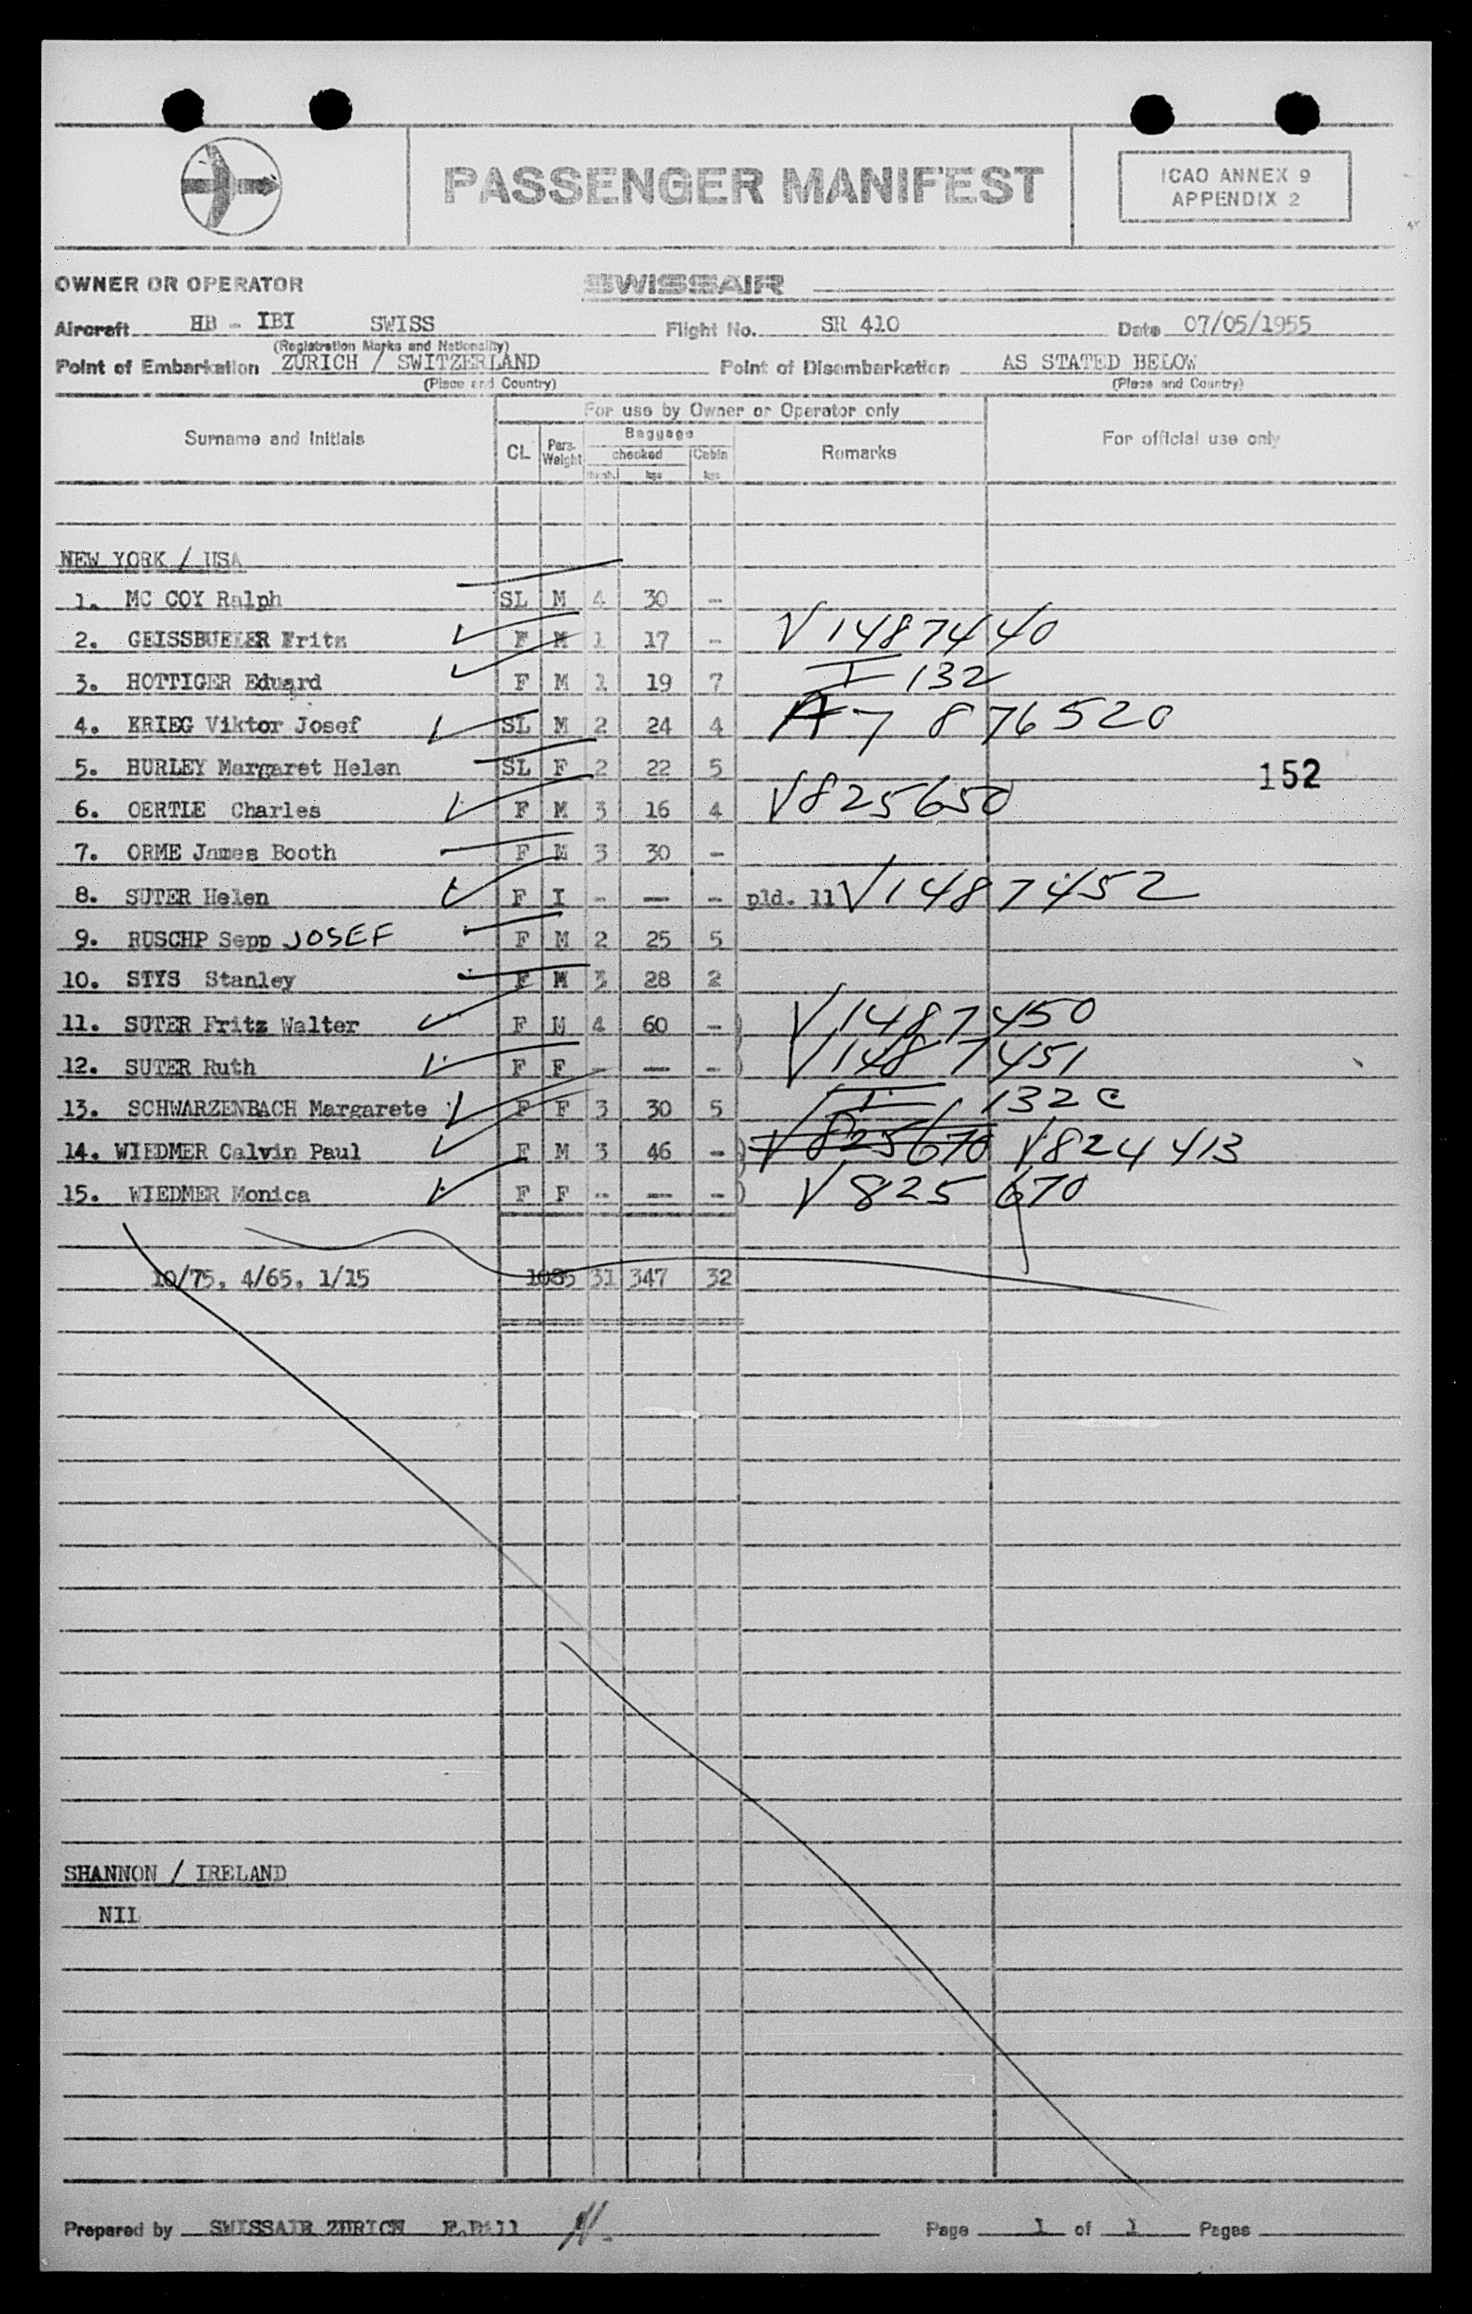 PASSENGER MANIFEST
ICAO ANNEX 9
APPENDIX 2
OWNER OR OPERATOR SWISSAIR
Aircraft HB - IBI SWISS Flight No. SR 410 Date 07/05/1955
(Registration Marks and Nationality)
Point of Embarkation ZURICH / SWITZERLAND Point of Disembarkation AS STATED BELOW
(Place and Country) (Place and Country)
For use by Owner or Operator only
Surname and Initials CL Pers. Weight Baggage checked kgs Cabin kgs Remarks For official use only
NEW YORK / USA
1. MC COY Ralph SL M 4 30 -
2. GEISSBUELER Fritz F M 1 17 - V1487440
3. HOTTIGER Eduard F M 1 19 7 I-132
4. KRIEG Viktor Josef SL M 2 24 4 A7 876520
5. HURLEY Margaret Helen SL F 2 22 5
152
6. OERTLE Charles F M 3 16 4 V825650
7. ORME James Booth F M 3 30 -
8. SUTER Helen F I - - - pld. 11 V1487452
9. RUSCHP Sepp JOSEF F M 2 25 5
10. STYS Stanley F M 3 28 2
11. SUTER Fritz Walter F M 4 60 -) V1487450
12. SUTER Ruth F F - - -) V1487451
13. SCHWARZENBACH Margarete F F 3 30 5 I-132C
14. WIEDMER Calvin Paul F M 3 46 -) V825670 V824413
15. WIEDMER Monica F F - - -) V825670
10/75, 4/65, 1/15 1085 31 347 32
SHANNON / IRELAND
NIL
Prepared by SWISSAIR ZURICH Page 1 of 1 Pages